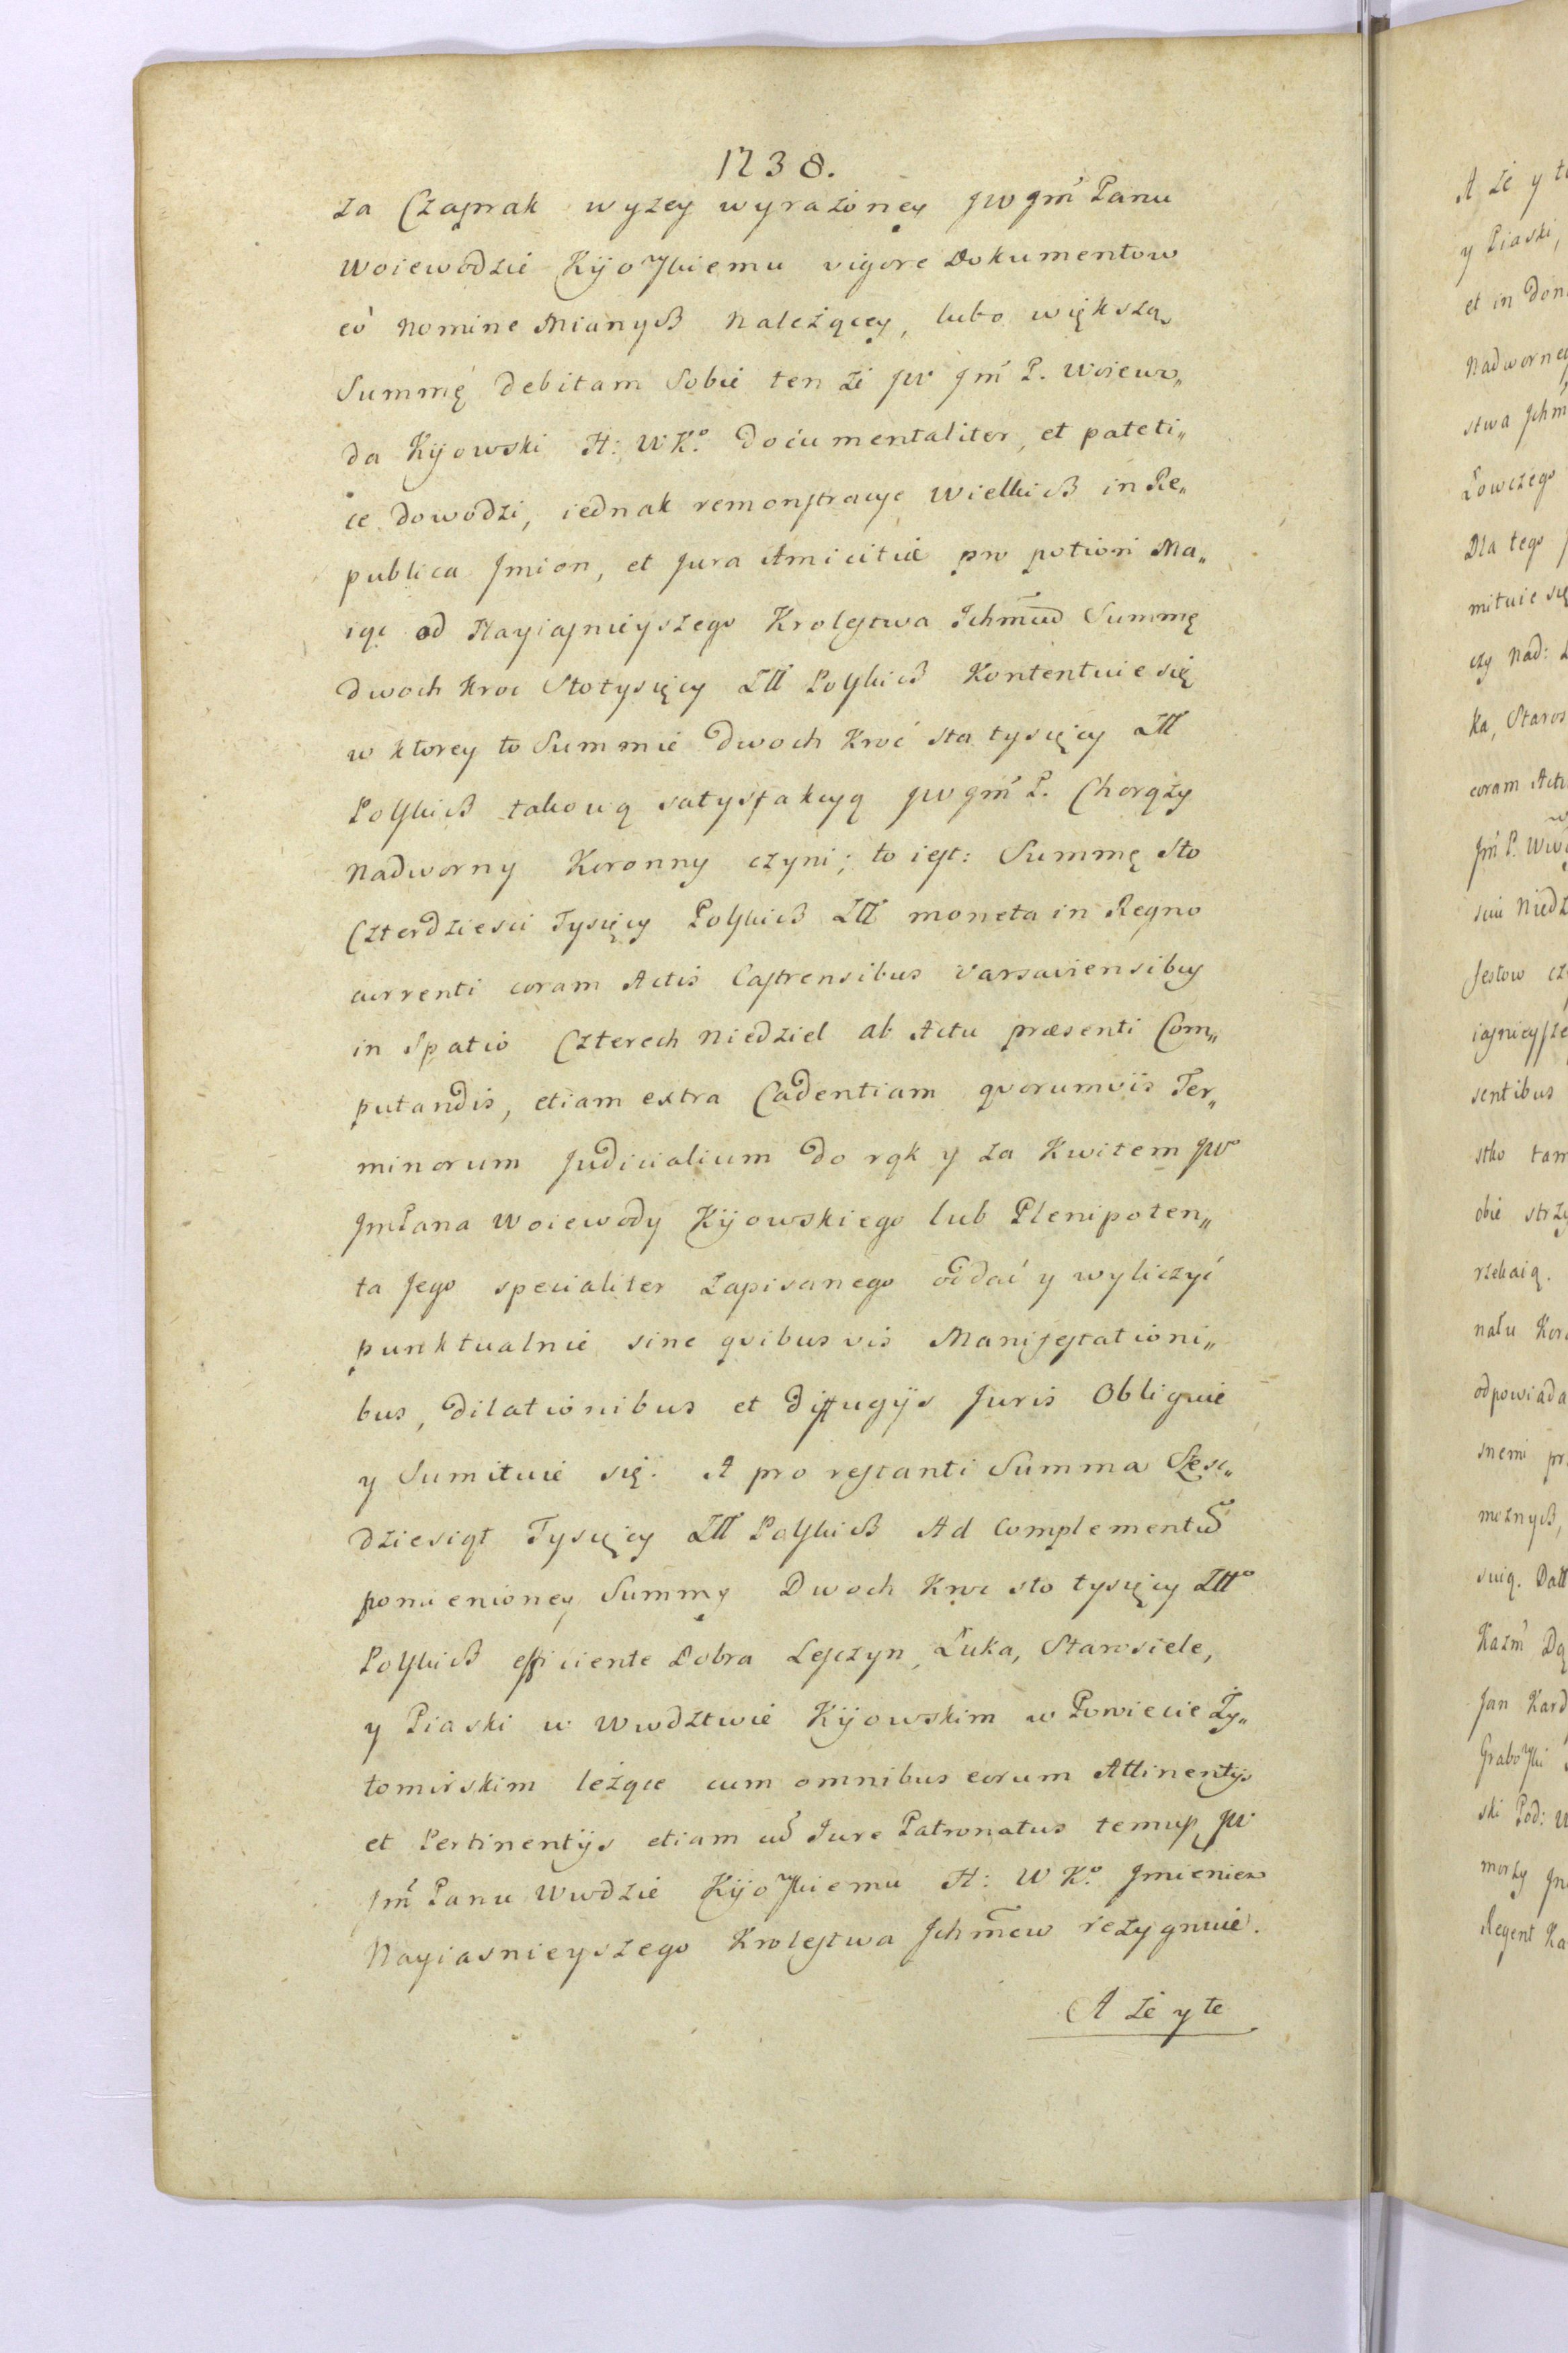 1738.
za Czaprak wyzey wyrażoney JW Jm̃ Panu
Woiewodzie Kijowskiemu vigore Dokumentow
eo nomine Mianych Należącey, lubo większą
Summę debitam Sobie ten że JW Jm̃ P. Woiewo„
da Kijowski H: W K.º documentaliter, et pateti„
ce dowodzi, iednak remonstracye Wielkich in Re„
publica Jmion, et Jura Amicitiæ pro potiori Ma„
iąc od Nayiasnieyszego Krolestwa Ichm̃ciow Summę
dwoch kroc Stotysięcy Złł Polskich Kontentuie się
w ktorey to Summie dwoch kroć sta tysięcy Złł
Polskich takową satysfakcyą JW Jm̃ P. Chorąży
Nadworny Koronny czyni; to iest: Summę Sto
Czterdziesci Tysięcy Polskich Złł moneta in Regno
currenti coram Actis Castrensibus Varsaviensibus
in Spatio Czterech Niedziel ab Actu præsenti Com„
putandis, etiam extra Cadentiam qvorumvis Ter„
minorum Judicialium do rąk y za Kwitem JW
JmPana Woiewody Kijowskiego lub Plenipoten„
ta Jego specialiter Zapisanego oddać y wyliczyć
punktualnie sine qvibusvis Manifestationi„
bus, dilationibus et diffugijs Juris Obliguie
y Sumituie się. A pro restanti Summa Szesc„
dziesiąt Tysięcy Złł Polskich Ad Complementum
pomienioney Summy Dwoch kroc sto tysięcy Złłº
Polskich efficiente Dobra Leszczyn, Łuka, Starosiele,
y Piaski w Wwdztwie Kijowskim w Powiecie Ży„
tomirskim leżące cum omnibus eorum Attinentijs
et Pertinentijs etiam cum Jure Patronatus temuż JW
Jm̃ Panu Wwdzie Kijowskiemu H: W K.º Jmieniem
Nayiasnieyszego Krolestwa Jchm̃cow rezygnuie.
A że y te
A że y
y Piaski,
et in
Nadworneg
stwa
Łowczego
Dla tego
mituie się
czy Nad:
ka,
coram
Jm̃ P.
Jestow
sentibus
stko
obie
rzekaią.
odpowiada
snemi
Jan
ski Pod:
Regent